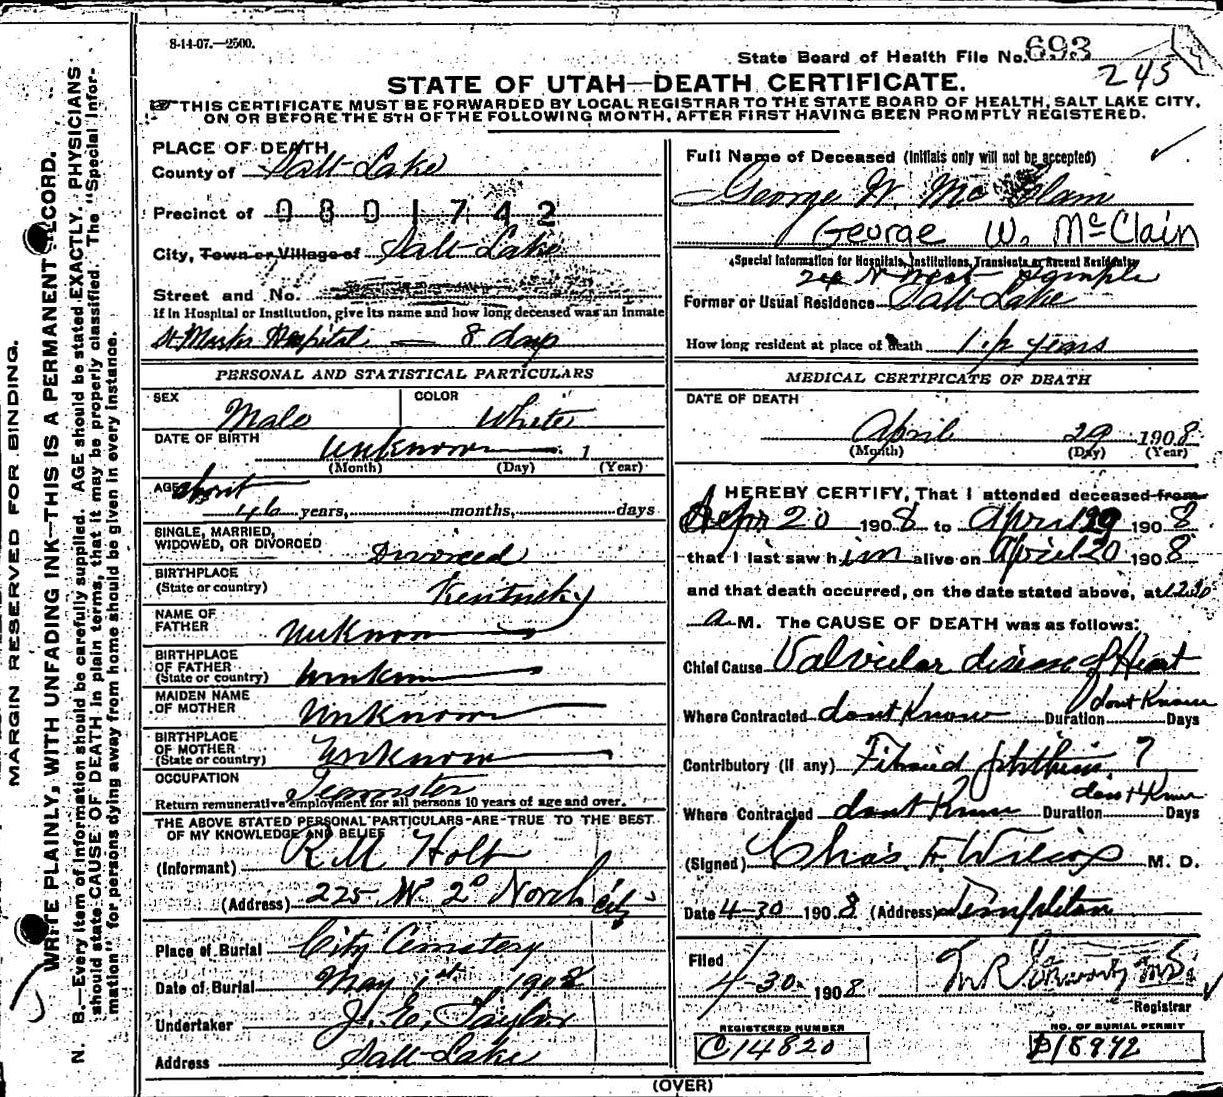 8-14-07.—2500.
State Board of Health File No. 693
245
STATE OF UTAH—DEATH CERTIFICATE.
THIS CERTIFICATE MUST BE FORWARDED BY LOCAL REGISTRAR TO THE STATE BOARD OF HEALTH, SALT LAKE CITY,
ON OR BEFORE THE 5TH OF THE FOLLOWING MONTH, AFTER FIRST HAVING BEEN PROMPTLY REGISTERED.
MARGIN RESERVED FOR BINDING.
WRITE PLAINLY, WITH UNFADING INK—THIS IS A PERMANENT RECORD.
N. B.—Every item of information should be carefully supplied. AGE should be stated EXACTLY. PHYSICIANS
should state CAUSE OF DEATH in plain terms, that it may be properly classified. The "Special Infor-
mation" for persons dying away from home should be given in every instance.
PLACE OF DEATH
County of Salt Lake
Precinct of 0801742
City, Town or Village of Salt Lake
Street and No.
If in Hospital or Institution, give its name and how long deceased was an inmate
St Marks Hospital — 8 days
PERSONAL AND STATISTICAL PARTICULARS
SEX Male
COLOR White
DATE OF BIRTH unknown 1
(Month) (Day) (Year)
AGE about
46 years, months, days
SINGLE, MARRIED,
WIDOWED, OR DIVORCED Divorced
BIRTHPLACE
(State or country) Kentucky
NAME OF
FATHER Unknown
BIRTHPLACE
OF FATHER
(State or country) unknown
MAIDEN NAME
OF MOTHER Unknown
BIRTHPLACE
OF MOTHER
(State or country) Unknown
OCCUPATION Teamster
Return remunerative employment for all persons 10 years of age and over.
THE ABOVE STATED PERSONAL PARTICULARS ARE TRUE TO THE BEST
OF MY KNOWLEDGE AND BELIEF
(Informant) R M Holt
(Address) 225 W 2nd North City
Place of Burial City Cemetery
Date of Burial May 1st 1908
Undertaker J. E. Taylor
Address Salt Lake
Full Name of Deceased (Initials only will not be accepted)
George W. Mc
George W. McClain
Special Information for Hospitals, Institutions, Transients or Recent Residents
N West Temple
Former or Usual Residence Salt Lake
How long resident at place of death years
MEDICAL CERTIFICATE OF DEATH
DATE OF DEATH
April 29 1908
(Month) (Day) (Year)
I HEREBY CERTIFY, That I attended deceased from
Apr 20 1908 to April 29 1908
that I last saw him alive on April 20 1908
and that death occurred, on the date stated above, at
a M. The CAUSE OF DEATH was as follows:
Chief Cause Valvular disease of Heart
Where Contracted dont Know Duration dont Know Days
Contributory (if any) Fibroid phthisis ?
Where Contracted dont Know Duration dont Know Days
(Signed) Chas F Wilcox M. D.
Date 4-30 1908 (Address) Templeton
Filed
4-30- 1908
Registrar
REGISTERED NUMBER
C14820
NO. OF BURIAL PERMIT
B18942
(OVER)